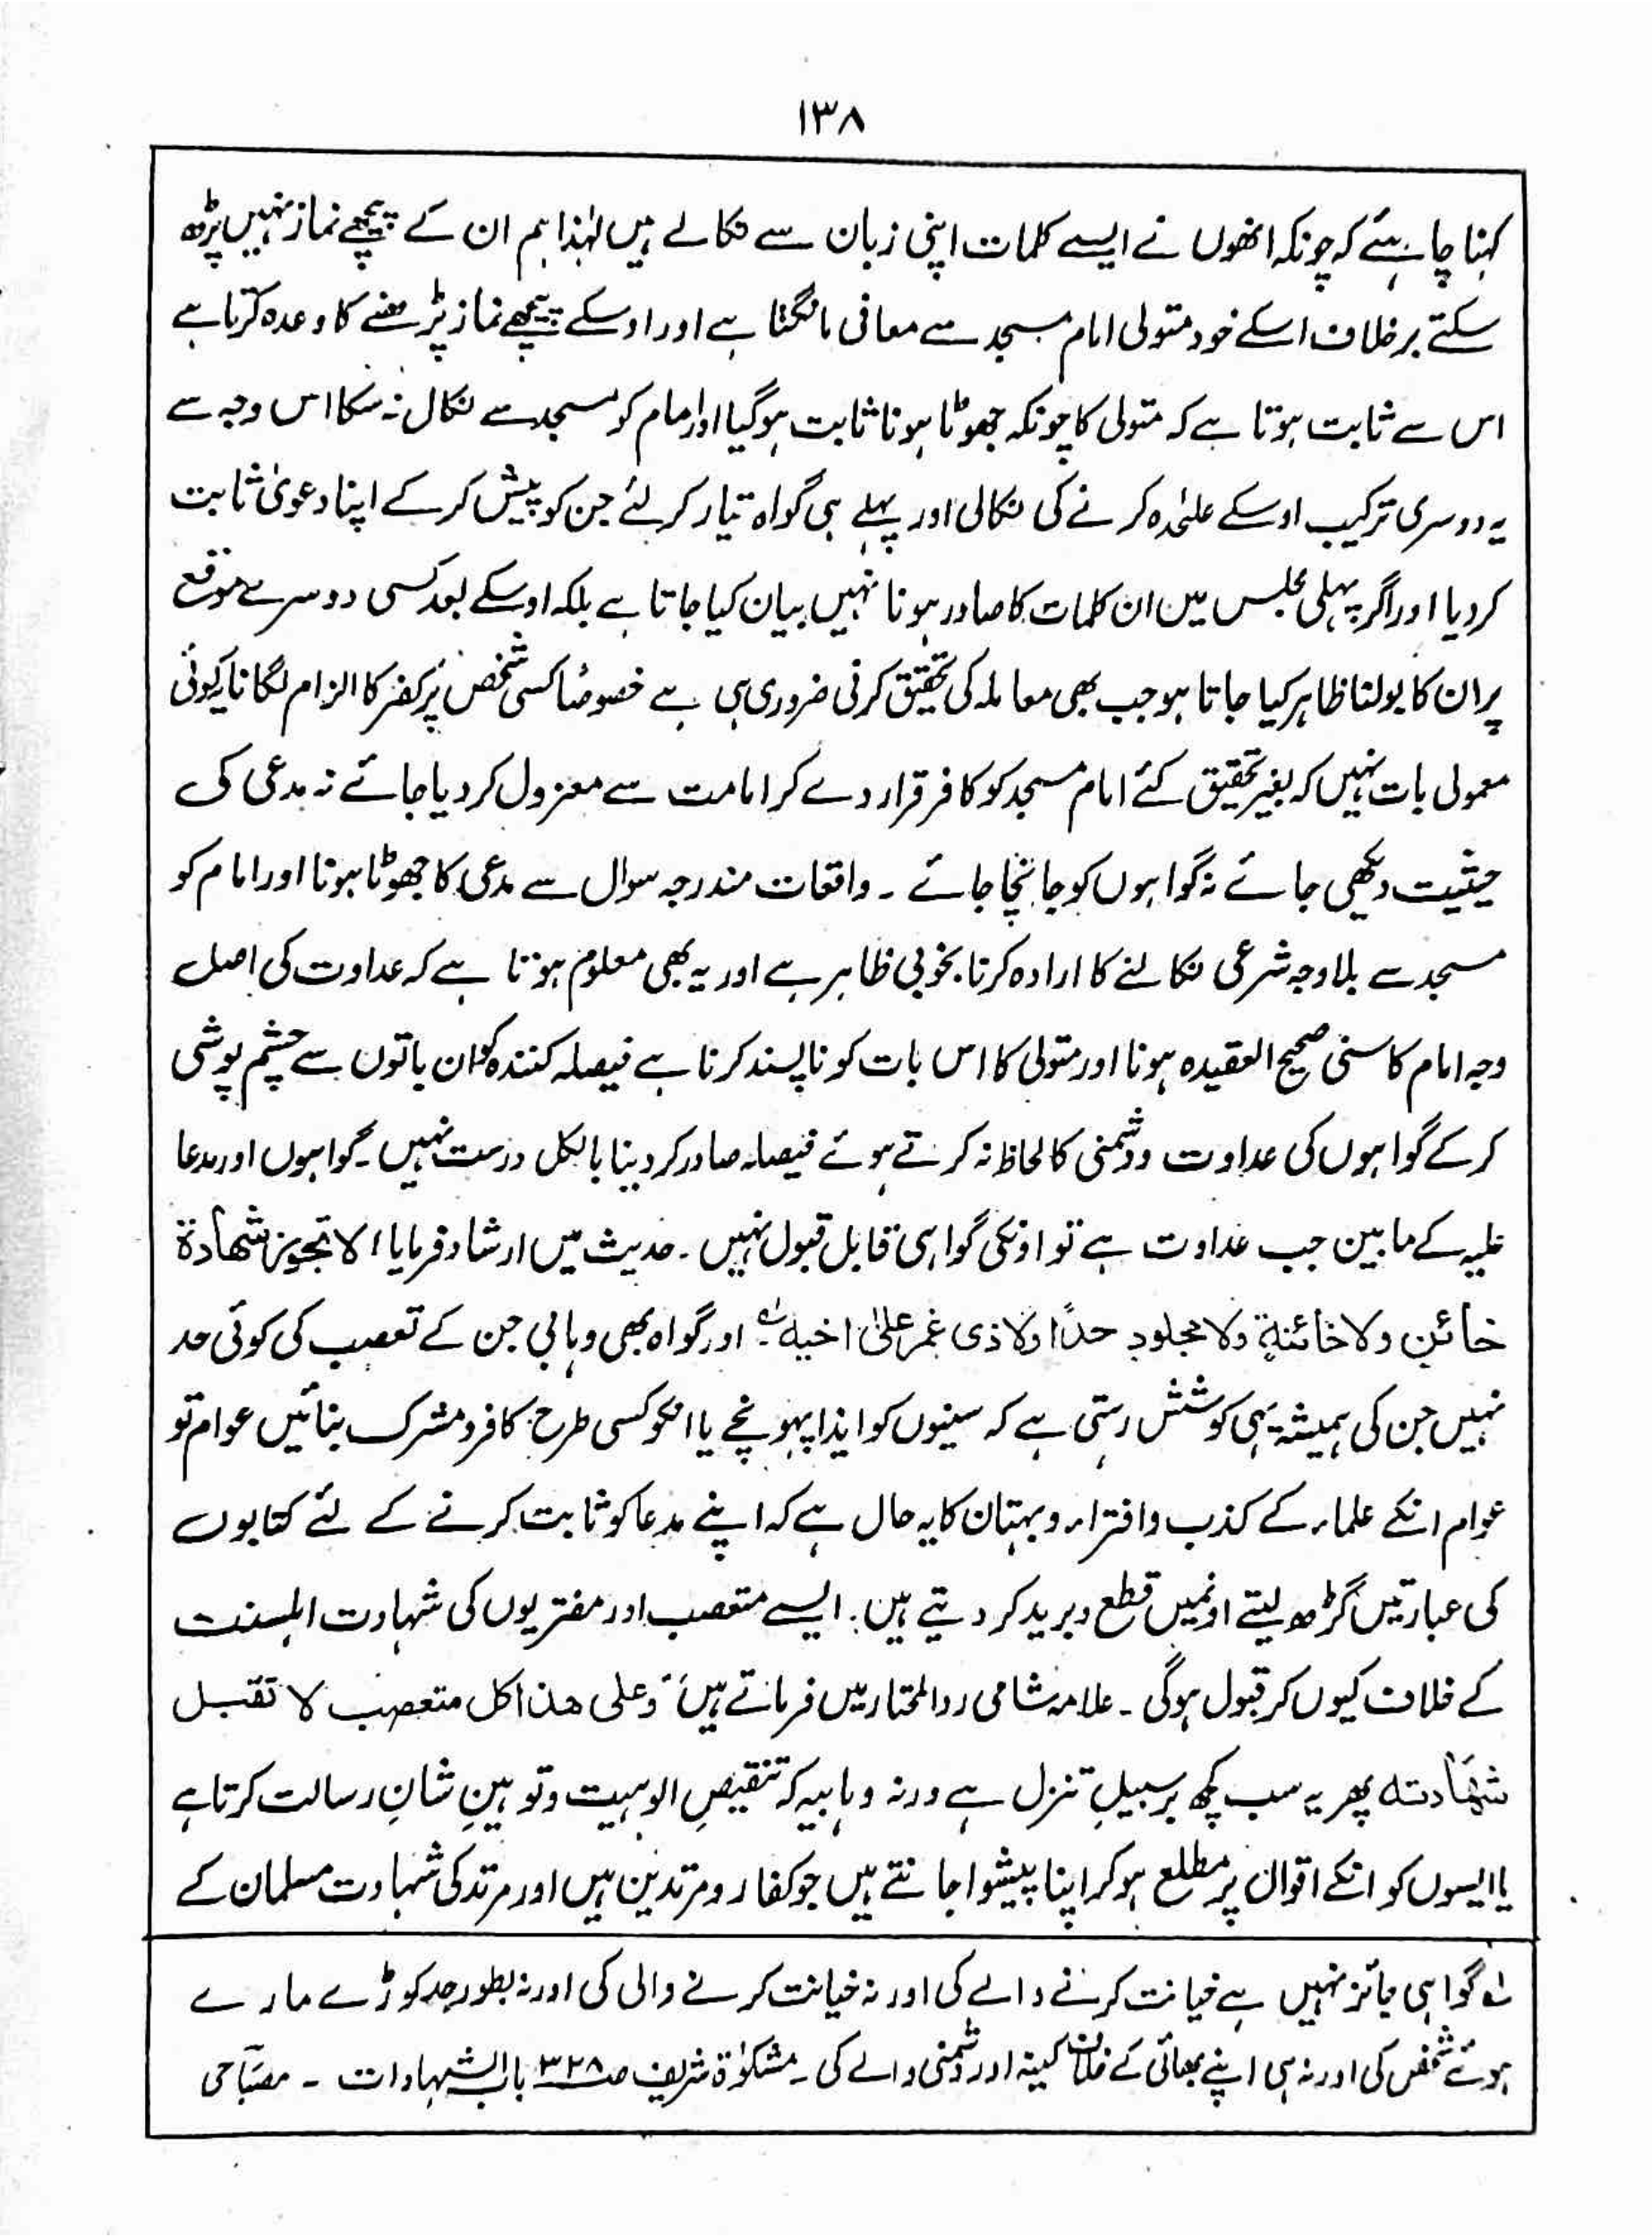 ۱۳۸
کہنا چاہئے کہ چونکہ انھوں نے ایسے کلمات اپنی زبان سے نکالے ہیں لہٰذا ہم ان کے پیچھے نماز نہیں پڑھ
سکتے برخلاف اسکے خود متولی امام مسجد سے معافی مانگتا ہے اور اوسکے پیچھے نماز پڑھنے کا وعدہ کرتا ہے
اس سے ثابت ہوتا ہے کہ متولی کا چونکہ جھوٹا ہونا ثابت ہوگیا اور امام کو مسجد سے نکال نہ سکا اس وجہ سے
یہ دوسری ترکیب اوسکے علیٰحدہ کرنے کی نکالی اور پہلے ہی گواہ تیار کر لئے جن کو پیش کر کے اپنا دعویٰ ثابت
کر دیا اور اگر پہلی مجلس میں ان کلمات کا صادر ہونا نہیں بیان کیا جاتا ہے بلکہ اوسکے بعد کسی دوسرے موقع
پر ان کا بولنا ظاہر کیا جاتا ہو جب بھی معاملہ کی تحقیق کرنی ضروری ہی ہے خصوصًا کسی شخص پر کفر کا الزام لگانا یہ کوئی
معمولی بات نہیں کہ بغیر تحقیق کئے امام مسجد کو کافر قرار دے کر امامت سے معزول کر دیا جائے نہ مدعی کی
حیثیت دیکھی جائے نہ گواہوں کو جانچا جائے ۔ واقعات مندرجہ سوال سے مدعی کا جھوٹا ہونا اور امام کو
مسجد سے بلا وجہ شرعی نکالنے کا ارادہ کرنا بخوبی ظاہر ہے اور یہ بھی معلوم ہوتا ہے کہ عداوت کی اصل
وجہ امام کا سنی صحیح العقیدہ ہونا اور متولی کا اس بات کو ناپسند کرنا ہے فیصلہ کنندہ کو ان باتوں سے چشم پوشی
کر کے گواہوں کی عداوت و دشمنی کا لحاظ نہ کرتے ہوئے فیصلہ صادر کر دینا بالکل درست نہیں ۔ گواہوں اور مدعا
علیہ کے مابین جب عداوت ہے تو اونکی گواہی قابل قبول نہیں ۔ حدیث میں ارشاد فرمایا، لا تجوز شهادة
خائن ولا خائنة ولا مجلود حدًا ولا ذی غمر علیٰ اخیه لہ اور گواہ بھی وہابی جن کے تعصب کی کوئی حد
نہیں جن کی ہمیشہ یہی کوشش رہتی ہے کہ سنیوں کو ایذا پہونچے یا انکو کسی طرح کافر و مشرک بنائیں عوام تو
عوام انکے علماء کے کذب و افتراء و بہتان کا یہ حال ہے کہ اپنے مدعا کو ثابت کرنے کے لئے کتابوں
کی عبارتیں گڑھ لیتے اونمیں قطع و برید کر دیتے ہیں۔ ایسے متعصب اور مفتریوں کی شہادت اہلسنت
کے خلاف کیوں کر قبول ہوگی ۔ علامہ شامی ردالمحتار میں فرماتے ہیں ”وعلی هذا کل متعصب لا تقبل
شهادته پھر یہ سب کچھ بر سبیلِ تنزل ہے ورنہ وہابیہ کہ تنقیصِ الوہیت و توہینِ شانِ رسالت کرتا ہے
یا ایسوں کو انکے اقوال پر مطلع ہو کر اپنا پیشوا جانتے ہیں جو کفار و مرتدین ہیں اور مرتد کی شہادت مسلمان کے
لہ گواہی جائز نہیں ہے خیانت کرنے والے کی اور نہ خیانت کرنے والی کی اور نہ بطور حد کوڑے مارے
ہوئے شخص کی اور نہ ہی اپنے بھائی کے خلاف کینہ اور دشمنی والے کی ۔ مشکوٰۃ شریف ص۳۲۸ باب الشہادات ۔ مصباحی